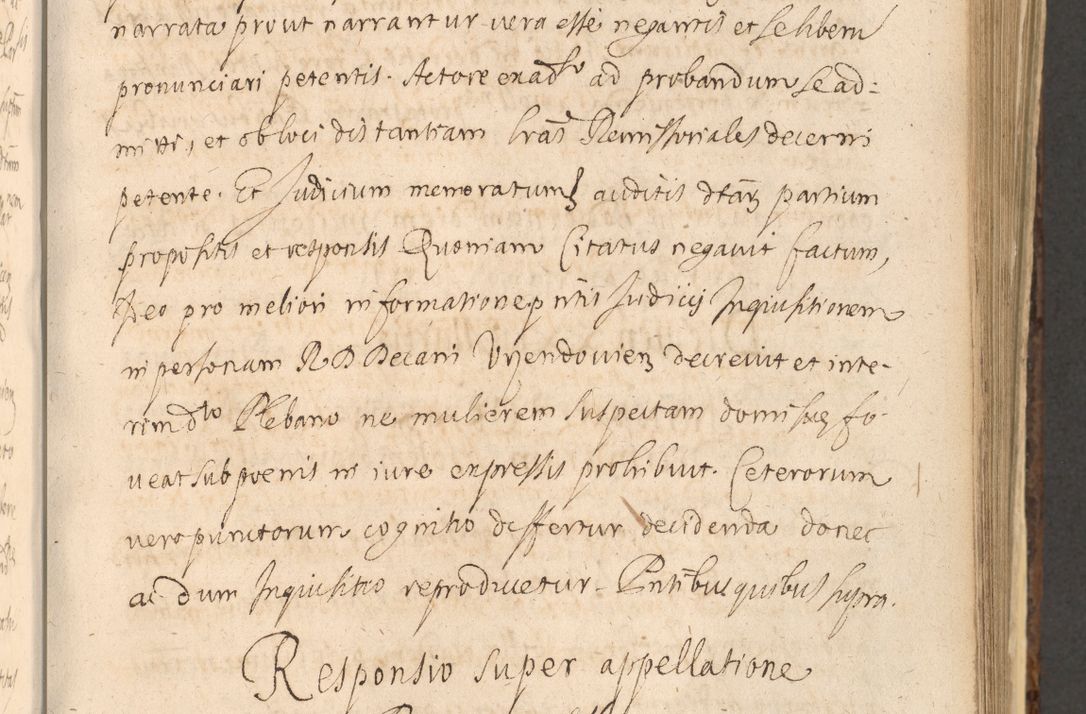 narrata prout narrantur vera esse negantis et se liberū
pronunciari petentis. Actore ex adso ad probandum se ad-
mitti, et ob loci distantiam lras Remissoriales decerni
petente. Et Judicium memoratum auditis dtarz partium
propositis et responsis Quoniam Citatus negavit factum,
Ideo pro meliori informatione pntis Judicij Inquisitionem
in personam R D Decani Urzendovien decrevit et inte-
rim dto Plebano ne mulierem suspectam domi suae fo-
veat sub poenis in iure expressis prohibuit. Ceterorum
vero punctorum cognitio differtur decidenda donec
ac dum Inquisitio reproducetur. Pntibus quibus supra.
Responsio super appellatione